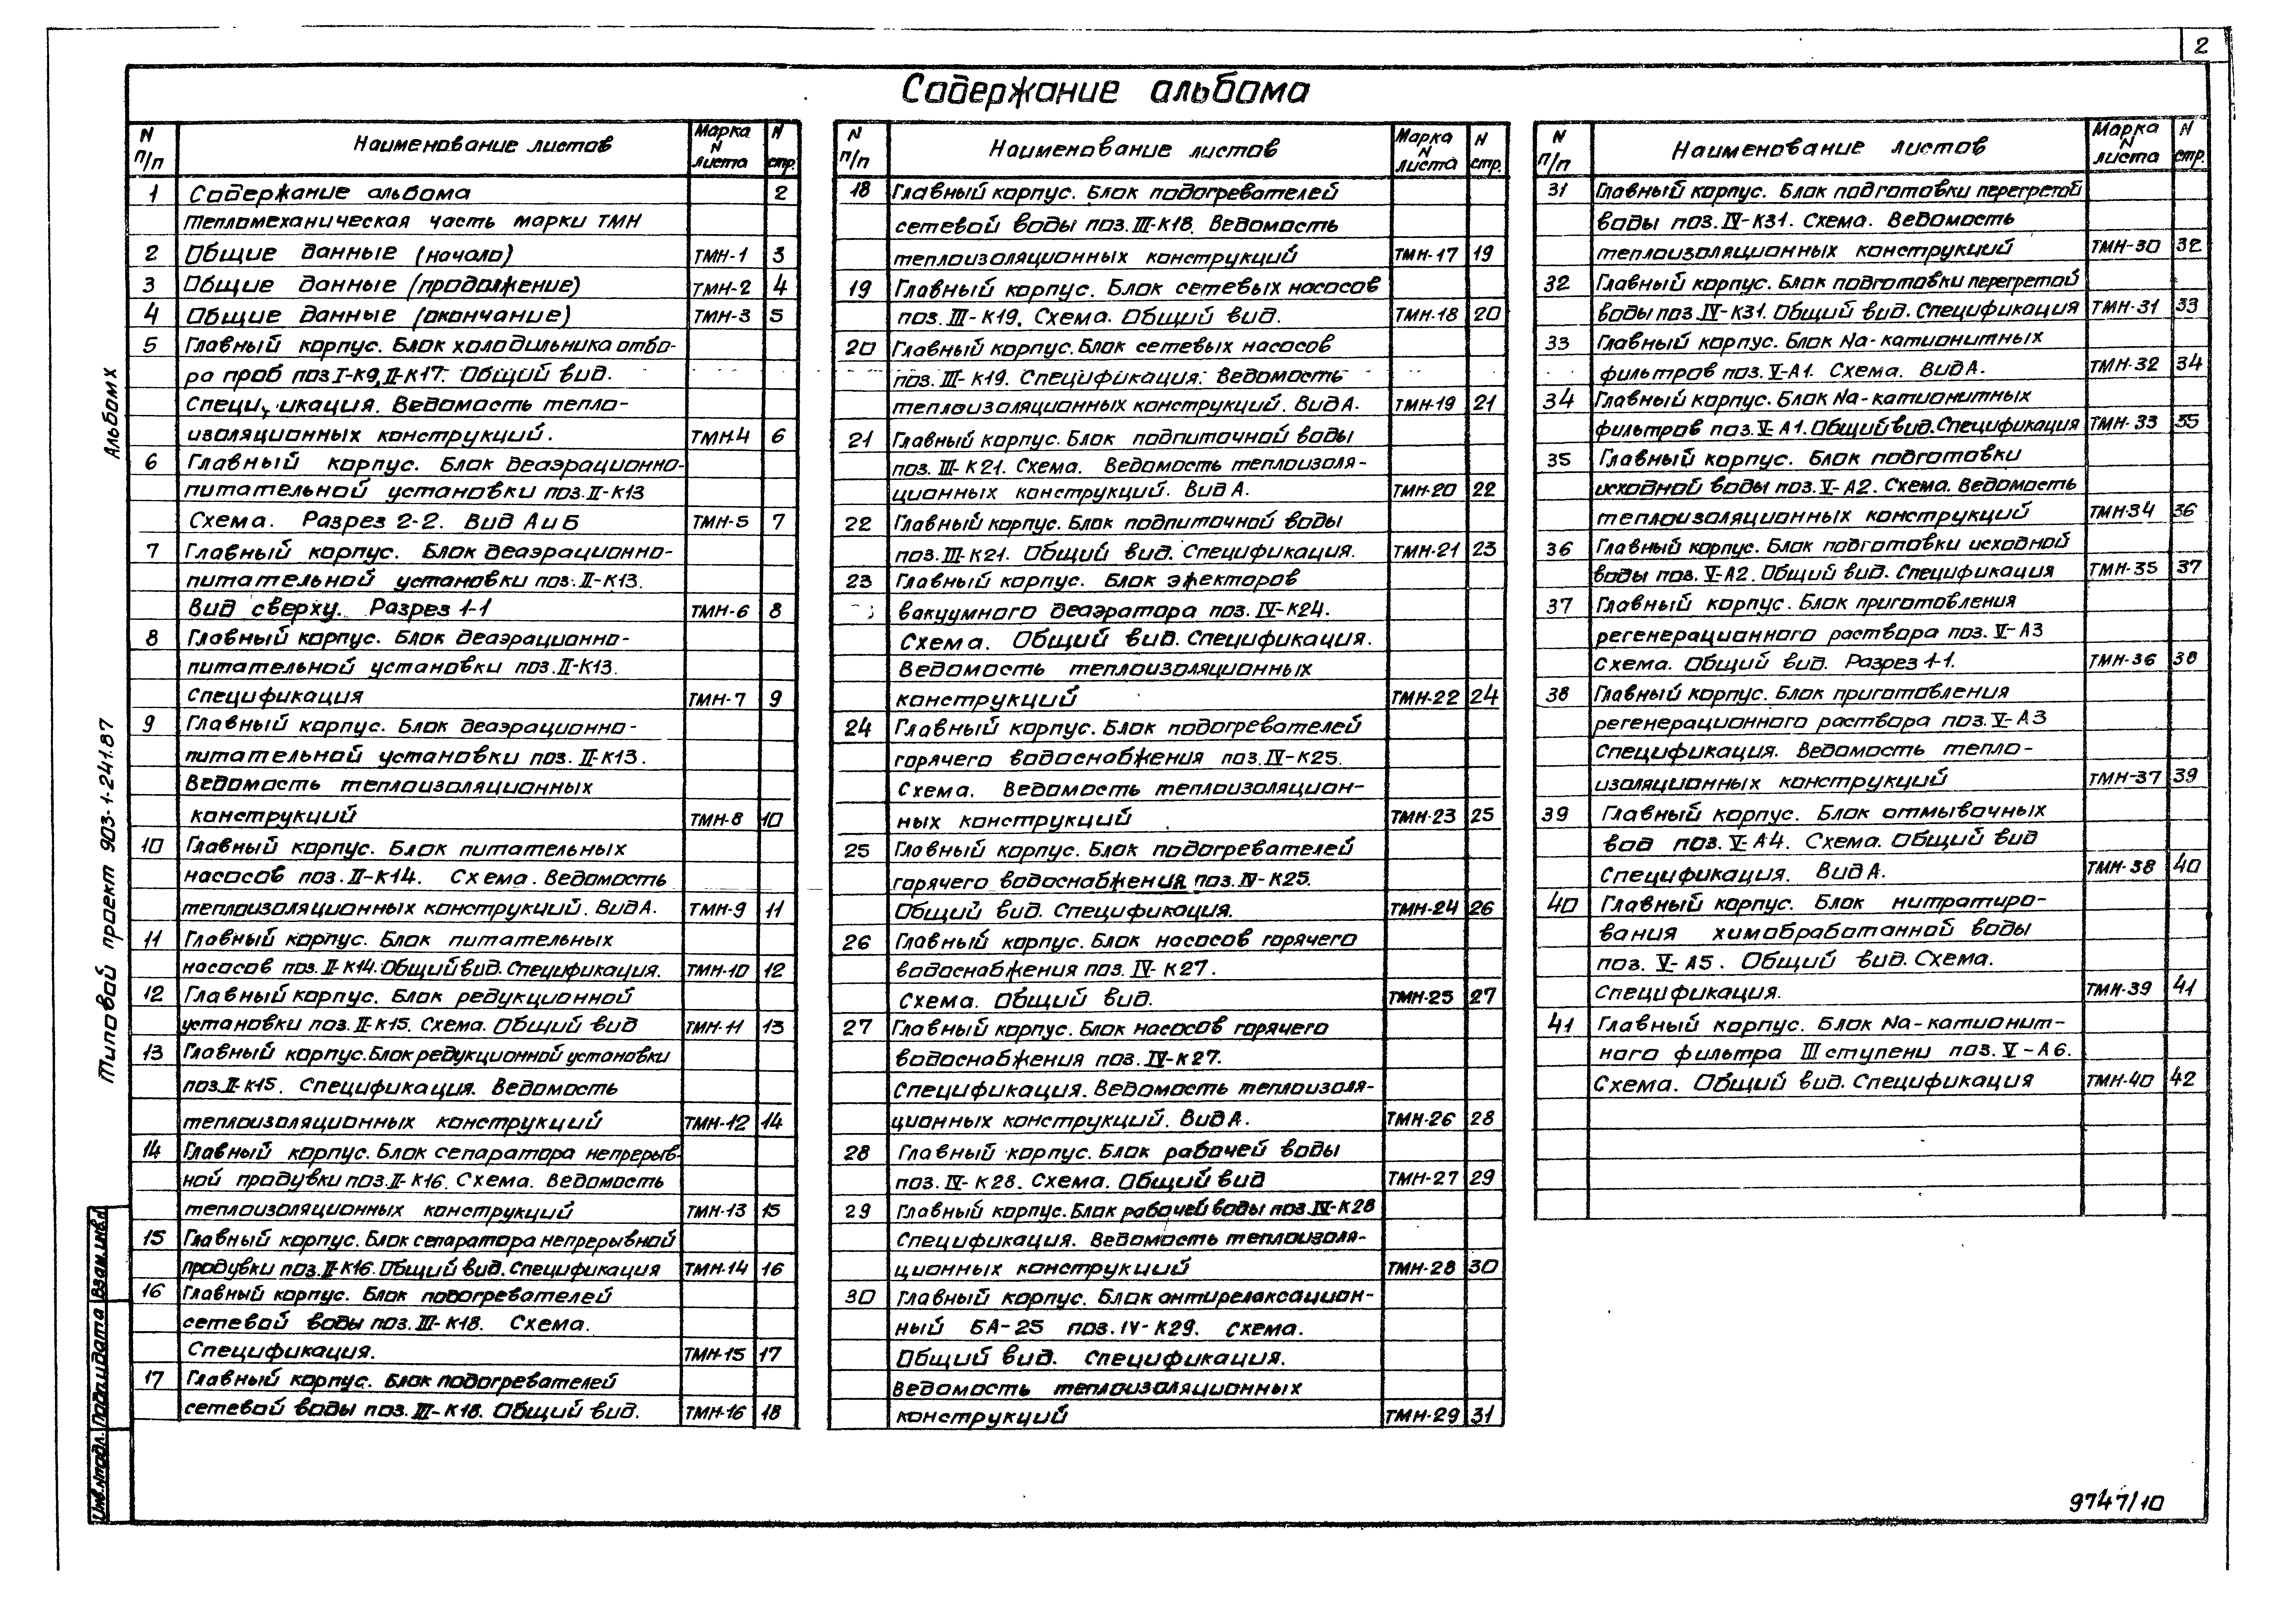 2
Содержание альбома
N п/п Наименование листов Марка N листа N стр.
1 Содержание альбома 2
Тепломеханическая часть марки ТМН
2 Общие данные (начало) ТМН-1 3
3 Общие данные (продолжение) ТМН-2 4
4 Общие данные (окончание) ТМН-3 5
5 Главный корпус. Блок холодильника отбо-
ра проб поз I-К9, II-К17. Общий вид.
Ведомость тепло-
изоляционных конструкций. ТМН-4 6
6 Главный корпус. Блок деаэрационно-
питательной установки поз. II-К13
Схема. Разрез 2-2. Вид А и Б ТМН-5 7
7 Главный корпус. Блок деаэрационно-
питательной установки поз. II-К13.
Вид сверху. Разрез 1-1 ТМН-6 8
8 Главный корпус. Блок деаэрационно-
питательной установки поз. II-К13.
Спецификация ТМН-7 9
9 Главный корпус. Блок деаэрационно-
питательной установки поз. II-К13.
Ведомость теплоизоляционных
конструкций ТМН-8 10
10 Главный корпус. Блок питательных
насосов поз. II-К14. Схема. Ведомость
теплоизоляционных конструкций. Вид А. ТМН-9 11
11 Главный корпус. Блок питательных
насосов поз. II-К14. Общий вид. Спецификация. ТМН-10 12
12 Главный корпус. Блок редукционной
установки поз. II-К15. Схема. Общий вид ТМН-11 13
13 Главный корпус. Блок редукционной установки
поз. II-К15. Спецификация. Ведомость
теплоизоляционных конструкций ТМН-12 14
14 Главный корпус. Блок сепаратора непрерыв-
ной продувки поз. II-К16. Схема. Ведомость
теплоизоляционных конструкций ТМН-13 15
15 Главный корпус. Блок сепаратора непрерывной
продувки поз. II-К16. Общий вид. Спецификация ТМН-14 16
16 Главный корпус. Блок подогревателей
сетевой воды поз. III-К18. Схема.
Спецификация. ТМН-15 17
17 Главный корпус. Блок подогревателей
сетевой воды поз. III-К18. Общий вид. ТМН-16 18
N п/п Наименование листов Марка N листа N стр.
18 Главный корпус. Блок подогревателей
сетевой воды поз. III-К18. Ведомость
теплоизоляционных конструкций ТМН-17 19
19 Главный корпус. Блок сетевых насосов
поз. III-К19. Схема. Общий вид. ТМН-18 20
20 Главный корпус. Блок сетевых насосов
поз. III-К19. Спецификация. Ведомость
теплоизоляционных конструкций. Вид А. ТМН-19 21
21 Главный корпус. Блок подпиточной воды
поз. III-К21. Схема. Ведомость теплоизоля-
ционных конструкций. Вид А. ТМН-20 22
22 Главный корпус. Блок подпиточной воды
поз. III-К21. Общий вид. Спецификация. ТМН-21 23
23 Главный корпус. Блок эжекторов
вакуумного деаэратора поз. IV-К24.
Схема. Общий вид. Спецификация.
Ведомость теплоизоляционных
конструкций ТМН-22 24
24 Главный корпус. Блок подогревателей
горячего водоснабжения поз. IV-К25.
Схема. Ведомость теплоизоляцион-
ных конструкций ТМН-23 25
25 Главный корпус. Блок подогревателей
горячего водоснабжения поз. IV-К25.
Общий вид. Спецификация. ТМН-24 26
26 Главный корпус. Блок насосов горячего
водоснабжения поз. IV-К27.
Схема. Общий вид. ТМН-25 27
27 Главный корпус. Блок насосов горячего
водоснабжения поз. IV-К27.
Спецификация. Ведомость теплоизоля-
ционных конструкций. Вид А. ТМН-26 28
28 Главный корпус. Блок рабочей воды
поз. IV-К28. Схема. Общий вид ТМН-27 29
29 Главный корпус. Блок рабочей воды поз. IV-К28
Спецификация. Ведомость теплоизоля-
ционных конструкций ТМН-28 30
30 Главный корпус. Блок антирелаксацион-
ный БА-25 поз. IV-К29. Схема.
Общий вид. Спецификация.
Ведомость теплоизоляционных
конструкций ТМН-29 31
N п/п Наименование листов Марка N листа N стр.
31 Главный корпус. Блок подготовки перегретой
воды поз. IV-К31. Схема. Ведомость
теплоизоляционных конструкций ТМН-30 32
32 Главный корпус. Блок подготовки перегретой
воды поз. IV-К31. Общий вид. Спецификация ТМН-31 33
33 Главный корпус. Блок Na-катионитных
фильтров поз. V-А1. Схема. Вид А. ТМН-32 34
34 Главный корпус. Блок Na-катионитных
фильтров поз. V-А1. Общий вид. Спецификация ТМН-33 35
35 Главный корпус. Блок подготовки
исходной воды поз. V-А2. Схема. Ведомость
теплоизоляционных конструкций ТМН-34 36
36 Главный корпус. Блок подготовки исходной
воды поз. V-А2. Общий вид. Спецификация ТМН-35 37
37 Главный корпус. Блок приготовления
регенерационного раствора поз. V-А3
Схема. Общий вид. Разрез 1-1. ТМН-36 38
38 Главный корпус. Блок приготовления
регенерационного раствора поз. V-А3
Спецификация. Ведомость тепло-
изоляционных конструкций ТМН-37 39
39 Главный корпус. Блок отмывочных
вод поз. V-А4. Схема. Общий вид
Спецификация. Вид А. ТМН-38 40
40 Главный корпус. Блок нитратиро-
вания химобработанной воды
поз. V-А5. Общий вид. Схема.
Спецификация. ТМН-39 41
41 Главный корпус. Блок Na-катионит-
ного фильтра III ступени поз. V-А6.
Схема. Общий вид. Спецификация ТМН-40 42
Альбом X
Типовой проект 903-1-241.87
Взам.инв.N
Подп.и дата
Инв.Nподл.
9747/10